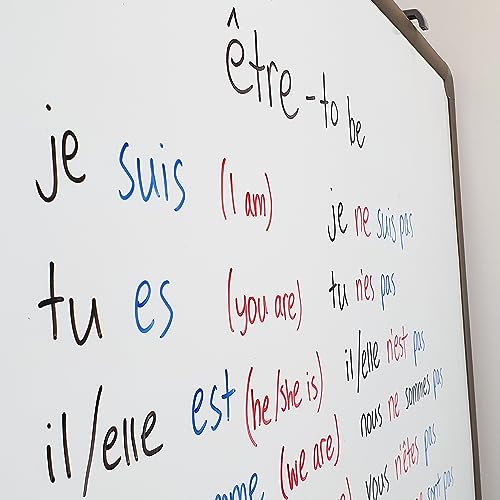 être - to be
je suis (I am)
tu es (you are)
il/elle est (he/she is)
(we are)
je ne suis pas
tu n'es pas
il/elle n'est pas
nous ne sommes pas
vous n'êtes pas